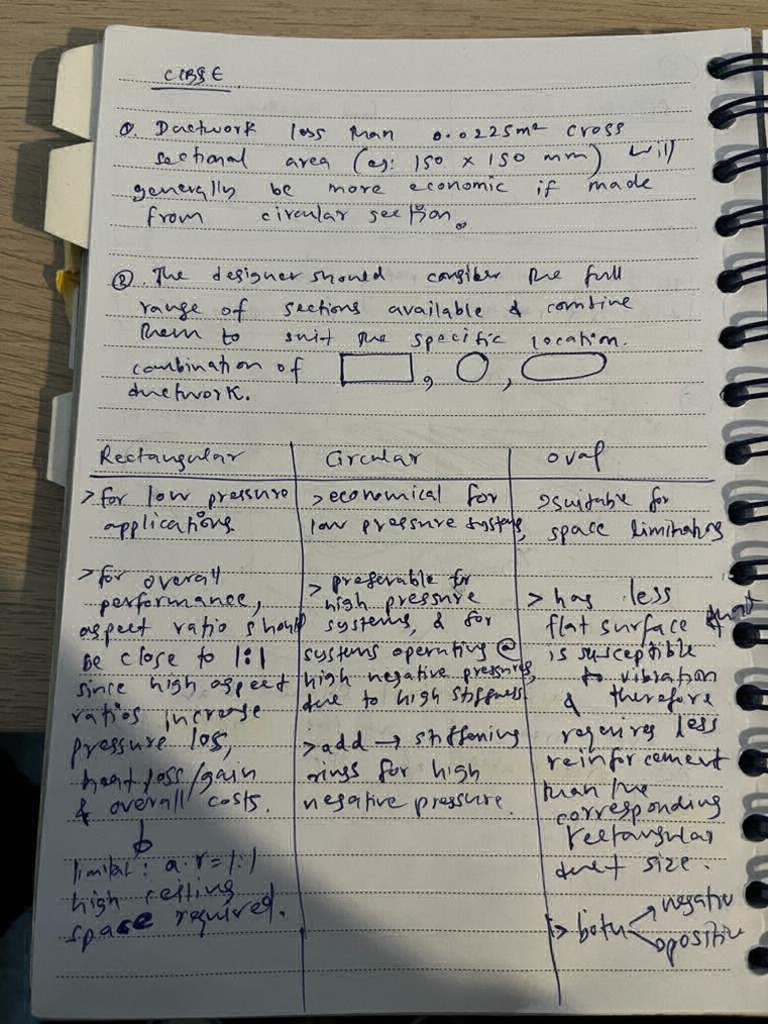 CIBSE
①. Ductwork less than 0.0225m² cross
sectional area (eg: 150 x 150 mm) will
generally be more economic if made
from circular section.
②. The designer should consider the full
range of sections available & combine
them to suit the specific location.
combination of , ,
ductwork.
Rectangular
> for low pressure
applications
> for overall
performance,
aspect ratio should
be close to 1:1
since high aspect
ratios increase
pressure loss,
heat loss/gain
& overall costs.
limitat: a.r=1:1
high ceiling
space required.
Circular
> economical for
low pressure systems,
> preferable for
high pressure
systems, & for
systems operating @
high negative pressures,
due to high stiffness
> add → stiffening
rings for high
negative pressure.
oval
> suitable for
space limitations
> has less
flat surface that
is susceptible
to vibration
& therefore
requires less
reinforcement
than the
corresponding
rectangular
duct size.
> both negative
positive